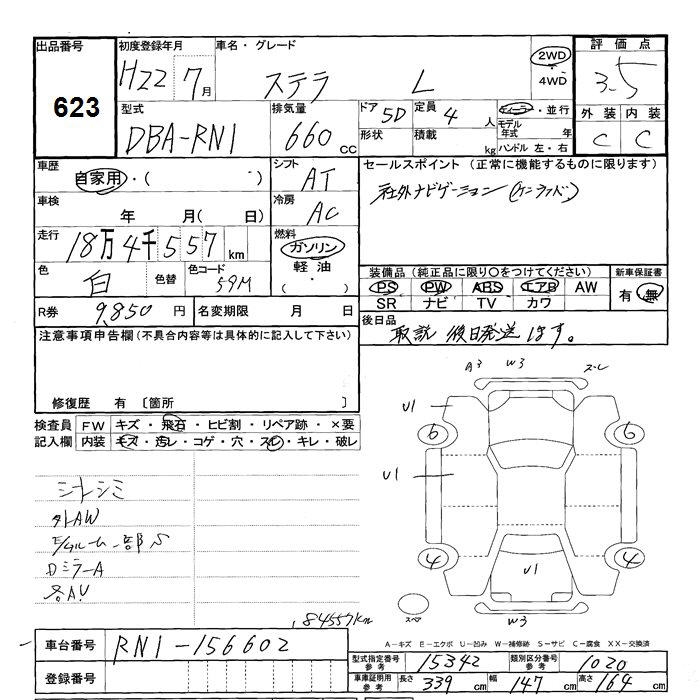 出品番号 初度登録年月 車名・グレード 評価点
623
H22 7月 ステラ L 2WD 4WD 3.5
型式 排気量 ドア 5D 定員 4人 ディーラー・並行 外装 内装
DBA-RN1 660cc 形状 積載 kg モデル年式 年 C C
ハンドル 左・右
車歴 シフト セールスポイント (正常に機能するものに限ります)
自家用・( ) AT 社外ナビゲーション (ケンウッド)
車検 年 月( 日) 冷房 AC
走行 18万4千557km 燃料 ガソリン
色 白 色替 色コード 59M 軽油 ( ・ )
装備品 (純正品に限り○をつけてください) 新車保証書
PS PW ABS エアB AW 有・無
SR ナビ TV カワ
R券 9,850円 名変期限 月 日
後日品 取説 後日発送します。
注意事項申告欄(不具合内容等は具体的に記入して下さい)
修復歴 有〔箇所 〕
検査員記入欄 FW キズ・飛石・ヒビ割・リペア跡・×要
内装 キズ・汚レ・コゲ・穴・スレ・キレ・破レ
シートシミ
外AW
E/gルーム一部S
DミラーA
各AU
184557km
A3 W3 スレ
U1
6 6
U1
4 4
U1
スペア W3
A−キズ E−エクボ U−凹み W−補修跡 S−サビ C−腐食 XX−交換済
車台番号 RN1-156602
登録番号
型式指定番号 参考 15342 類別区分番号 参考 1020
車庫証明用 参考 長さ 339cm 幅 147cm 高さ 164cm